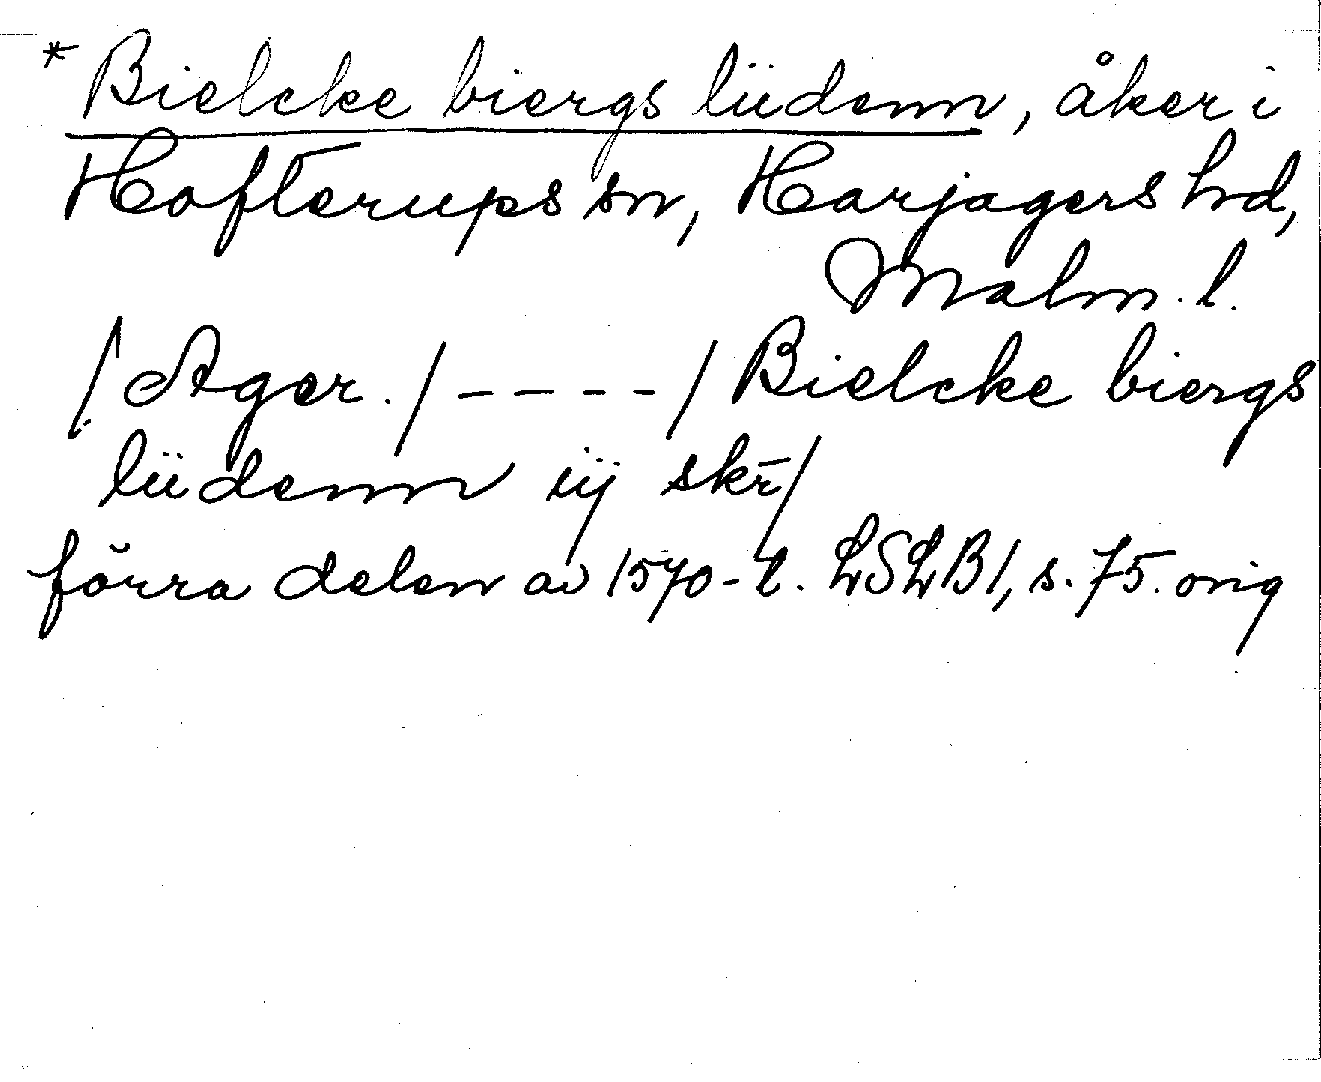 * Bielcke biergs lüdenn, åker i
Hofterups sn, Harjagers hd,
Malm. l.
/Ager./ – – – – / Bielcke biergs
lüdenn iij skr̄/
förra delen av 1570-t. LSLB1, s. 75. orig